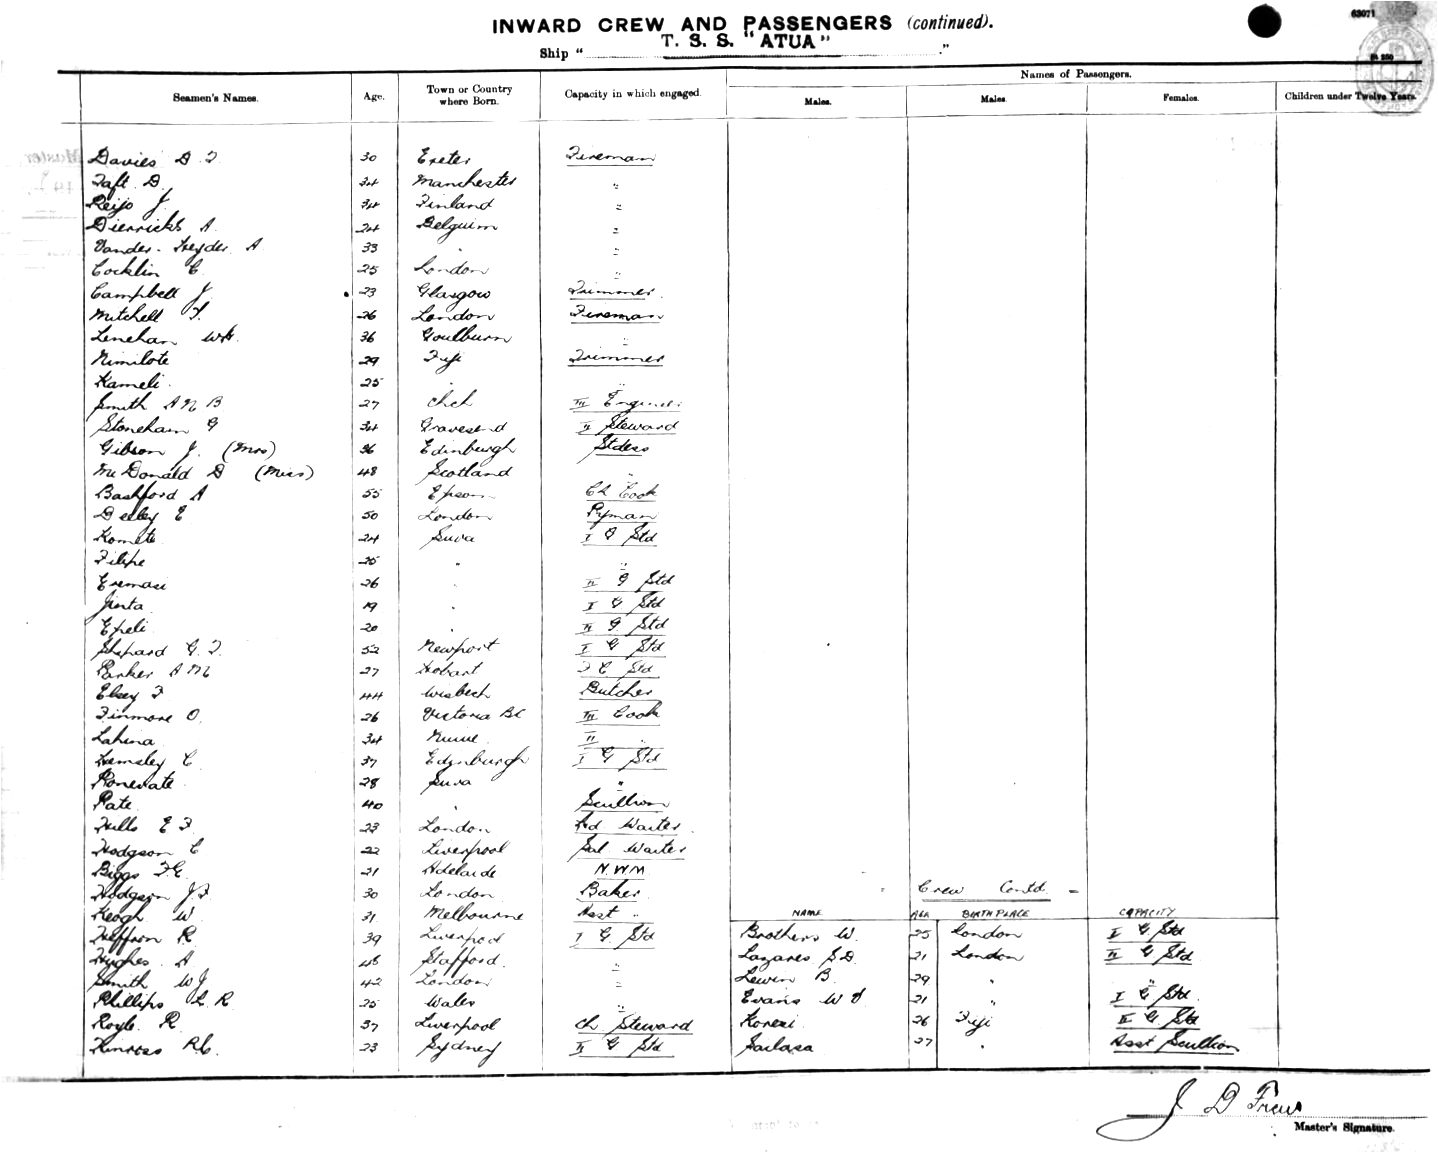 INWARD CREW AND PASSENGERS (continued).
63071
Ship " T. S. S. "ATUA" ."
Names of Passengers.
Seamen's Names. Age. Town or Country where Born. Capacity in which engaged. Males. Males. Females. Children under Twelve Years.
Davies D. T 30 Exeter Fireman
Taft D. 34 Manchester "
Reijo J. 34 Finland "
Dierricks A. 24 Belguim "
Vander-Heyder A 33 " "
Cocklin C. 25 London "
Campbell J. 23 Glasgow Trimmer
Mitchell F. 26 London Fireman
Lenehan WH. 36 Goulburn "
Nimilote 29 Fiji Trimmer
Kameli 25 " "
Smith A N B 27 Chch III Engineer
Stoneham G 34 Gravesend II Steward
Gibson J. (Mrs) 36 Edinburgh Stdess
McDonald D (Miss) 48 Scotland "
Bashford A 55 Epsom Ch Cook
Deeley E 50 London Pyman
Komete 24 Suva I G Std
Filipe 25 " "
Eremasi 26 " II G Std
19 " I G Std
Epeli 20 " II G Std
Shepard G. T. 52 Newport I G Std
Parker A M 27 Hobart F C Std
Elsey F 44 Wisbech Butcher
Finmore O. 26 Victoria BC III Cook
Lahina 34 Nuiue II "
Hemsley C 37 Edinburgh I G Std
28 Suva "
Pate 40 " Scullion
Hills E F. 23 London Hd Waiter
Hodgson C 22 Liverpool Sal Waiter
Biggs F.G. 21 Adelaide N.W.M
Hodgson J.F 30 London Baker Crew Contd -
Keogh W 31 Melbourne Asst " NAME AGE BIRTHPLACE CAPACITY
Heffron R 39 Liverpool I G. Std Brothers W. 25 London I G Std
Hughes A 48 Stafford " Lazares S.D. 21 London II G Std
Smith W J 42 London " Lewin B. 29 " "
Phillips L R 25 Wales " Evans W 21 " I G Std
Royle R. 37 Liverpool Ch Steward Koresi 26 Fiji II G Std
Kinross R.C. 23 Sydney II G Std Sailasa 27 " Asst Scullion
J D Frew
Master's Signature.